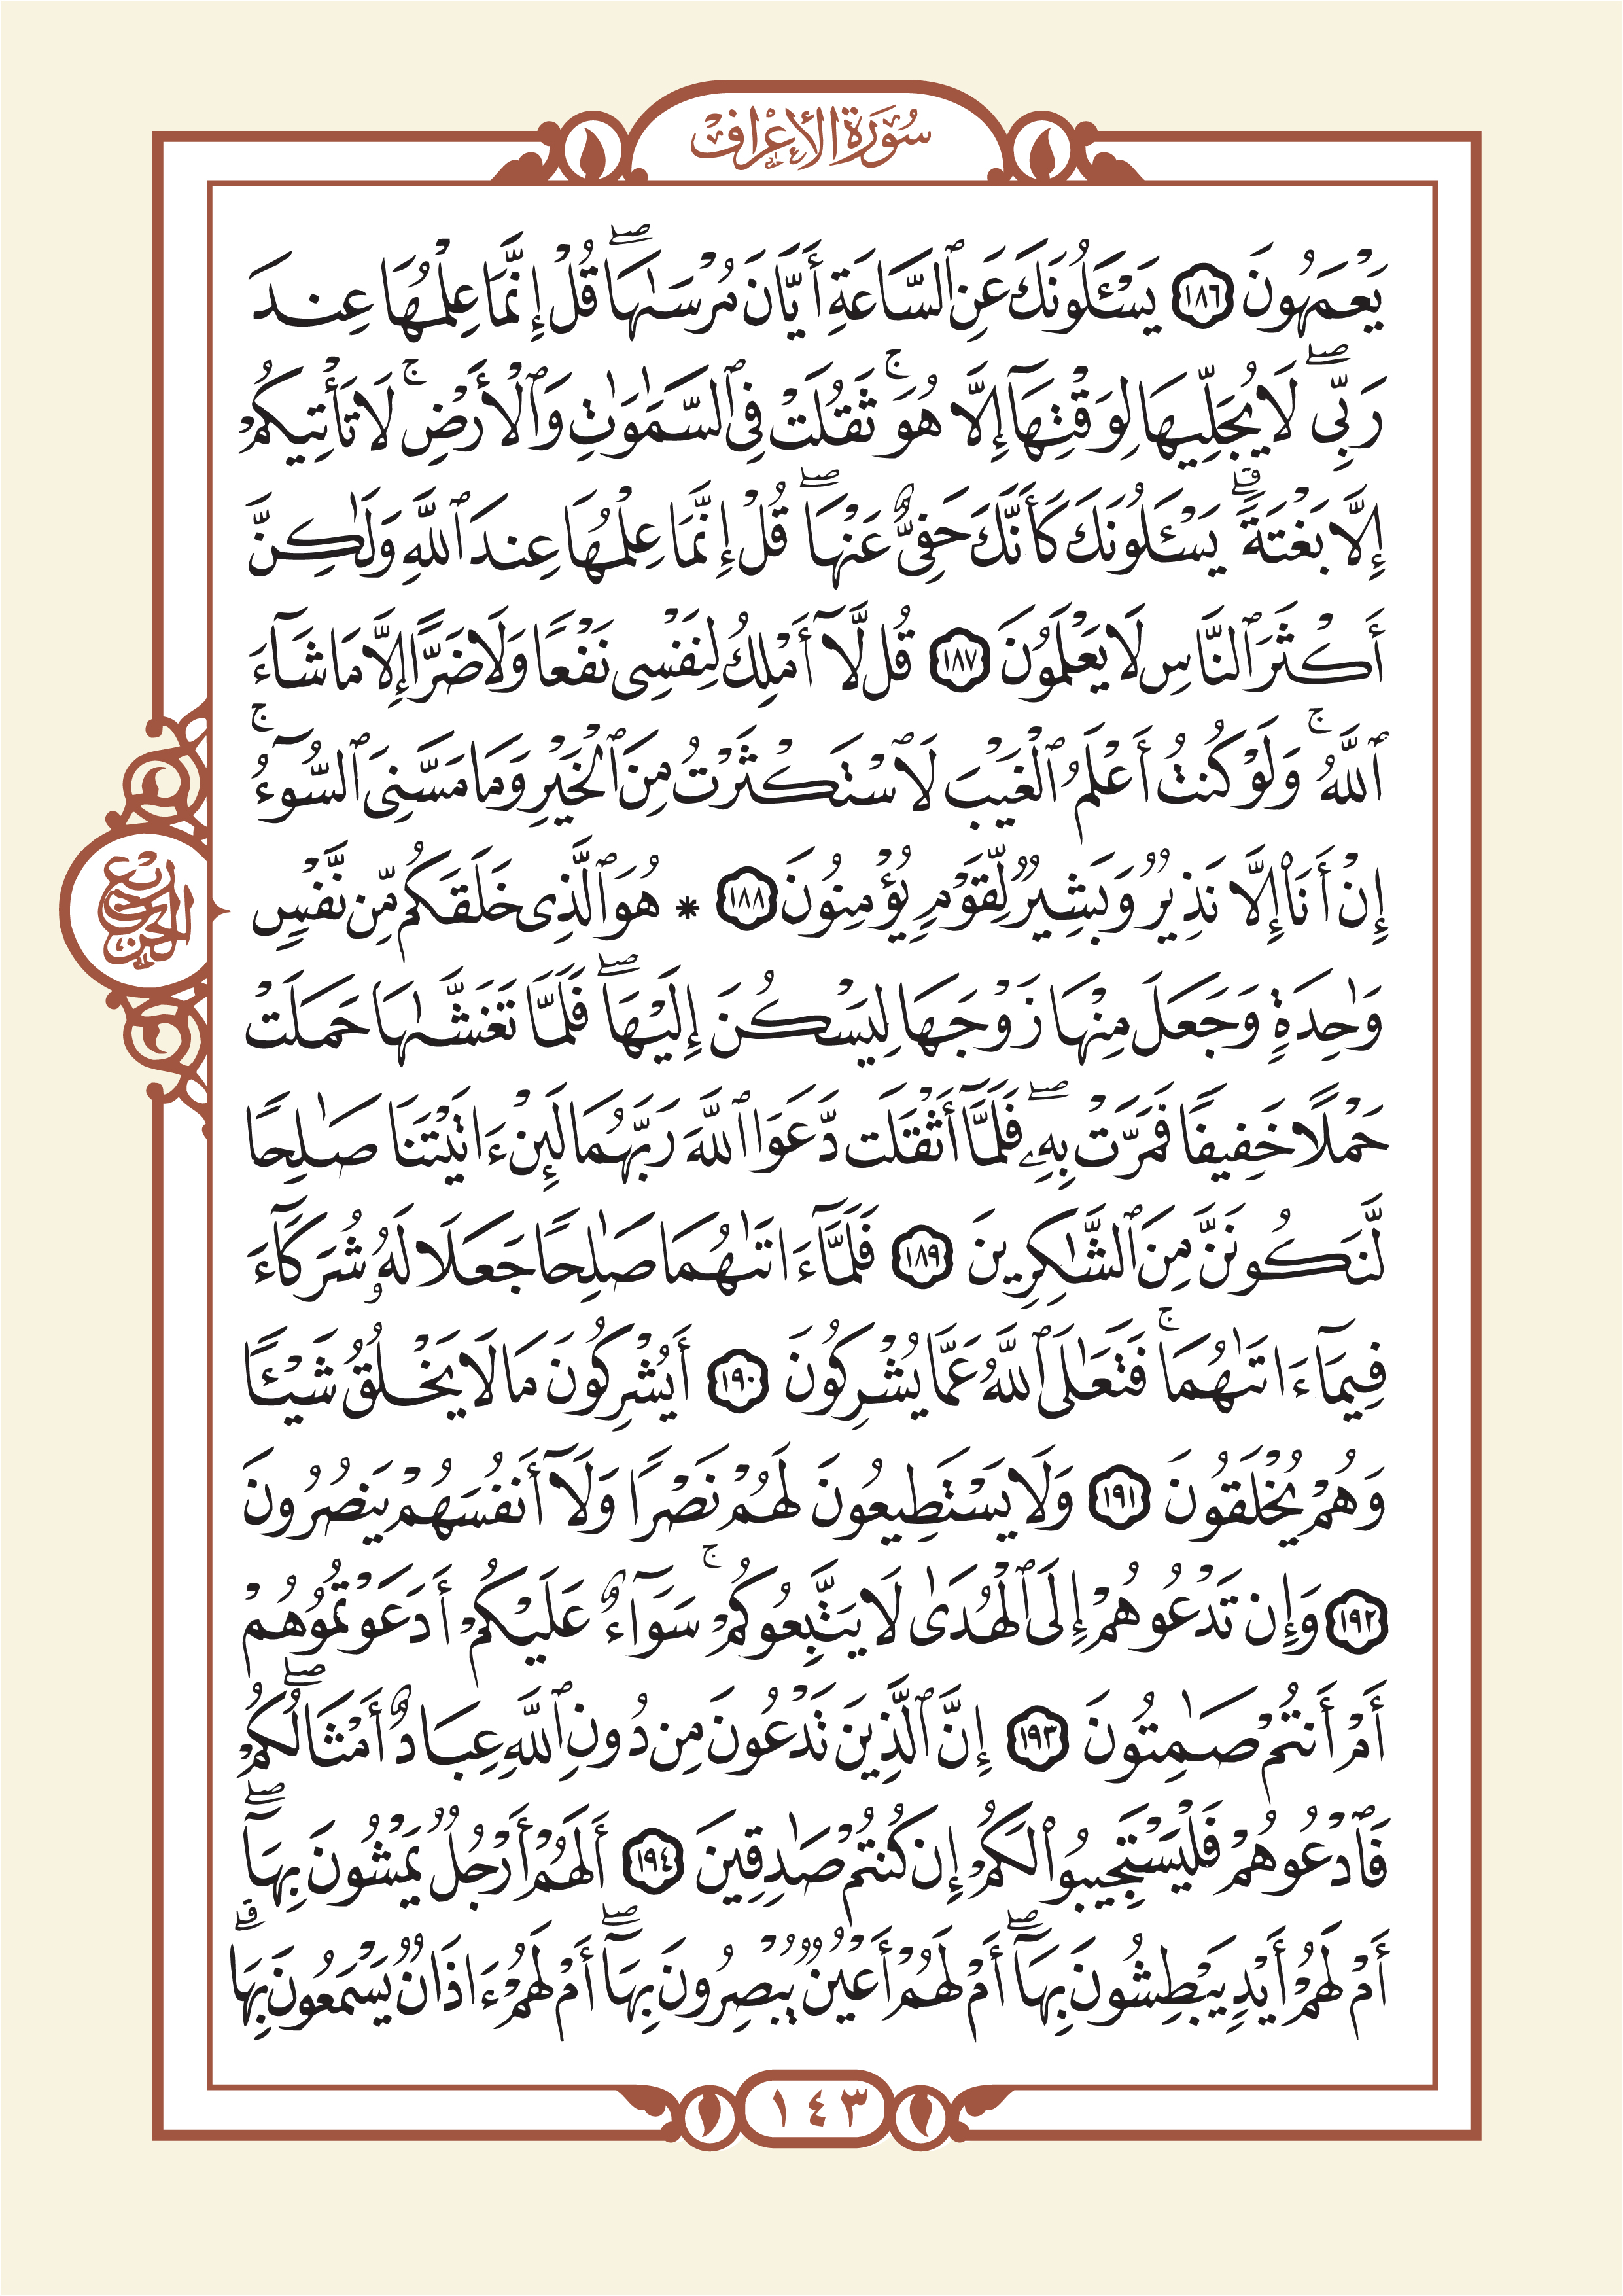 سُورَةُ الأَعْرَافِ
يَعْمَهُونَ ١٨٦ يَسْـَٔلُونَكَ عَنِ ٱلسَّاعَةِ أَيَّانَ مُرْسَىٰهَا ۖ قُلْ إِنَّمَا عِلْمُهَا عِندَ
رَبِّى ۖ لَا يُجَلِّيهَا لِوَقْتِهَآ إِلَّا هُوَ ۚ ثَقُلَتْ فِى ٱلسَّمَٰوَٰتِ وَٱلْأَرْضِ ۚ لَا تَأْتِيكُمْ
إِلَّا بَغْتَةً ۗ يَسْـَٔلُونَكَ كَأَنَّكَ حَفِىٌّ عَنْهَا ۖ قُلْ إِنَّمَا عِلْمُهَا عِندَ ٱللَّهِ وَلَٰكِنَّ
أَكْثَرَ ٱلنَّاسِ لَا يَعْلَمُونَ ١٨٧ قُل لَّآ أَمْلِكُ لِنَفْسِى نَفْعًا وَلَا ضَرًّا إِلَّا مَا شَآءَ
ٱللَّهُ ۚ وَلَوْ كُنتُ أَعْلَمُ ٱلْغَيْبَ لَٱسْتَكْثَرْتُ مِنَ ٱلْخَيْرِ وَمَا مَسَّنِىَ ٱلسُّوٓءُ ۚ
إِنْ أَنَا۠ إِلَّا نَذِيرٌ وَبَشِيرٌ لِّقَوْمٍ يُؤْمِنُونَ ١٨٨ * هُوَ ٱلَّذِى خَلَقَكُم مِّن نَّفْسٍ
الحزب ربع
وَٰحِدَةٍ وَجَعَلَ مِنْهَا زَوْجَهَا لِيَسْكُنَ إِلَيْهَا ۖ فَلَمَّا تَغَشَّىٰهَا حَمَلَتْ
حَمْلًا خَفِيفًا فَمَرَّتْ بِهِۦ ۖ فَلَمَّآ أَثْقَلَت دَّعَوَا ٱللَّهَ رَبَّهُمَا لَئِنْ ءَاتَيْتَنَا صَٰلِحًا
لَّنَكُونَنَّ مِنَ ٱلشَّٰكِرِينَ ١٨٩ فَلَمَّآ ءَاتَىٰهُمَا صَٰلِحًا جَعَلَا لَهُۥ شُرَكَآءَ
فِيمَآ ءَاتَىٰهُمَا ۚ فَتَعَٰلَى ٱللَّهُ عَمَّا يُشْرِكُونَ ١٩٠ أَيُشْرِكُونَ مَا لَا يَخْلُقُ شَيْـًٔا
وَهُمْ يُخْلَقُونَ ١٩١ وَلَا يَسْتَطِيعُونَ لَهُمْ نَصْرًا وَلَآ أَنفُسَهُمْ يَنصُرُونَ
١٩٢ وَإِن تَدْعُوهُمْ إِلَى ٱلْهُدَىٰ لَا يَتَّبِعُوكُمْ ۚ سَوَآءٌ عَلَيْكُمْ أَدَعَوْتُمُوهُمْ
أَمْ أَنتُمْ صَٰمِتُونَ ١٩٣ إِنَّ ٱلَّذِينَ تَدْعُونَ مِن دُونِ ٱللَّهِ عِبَادٌ أَمْثَالُكُمْ ۖ
فَٱدْعُوهُمْ فَلْيَسْتَجِيبُوا۟ لَكُمْ إِن كُنتُمْ صَٰدِقِينَ ١٩٤ أَلَهُمْ أَرْجُلٌ يَمْشُونَ بِهَآ ۖ
أَمْ لَهُمْ أَيْدٍ يَبْطِشُونَ بِهَآ ۖ أَمْ لَهُمْ أَعْيُنٌ يُبْصِرُونَ بِهَآ ۖ أَمْ لَهُمْ ءَاذَانٌ يَسْمَعُونَ بِهَا ۗ
١٤٣